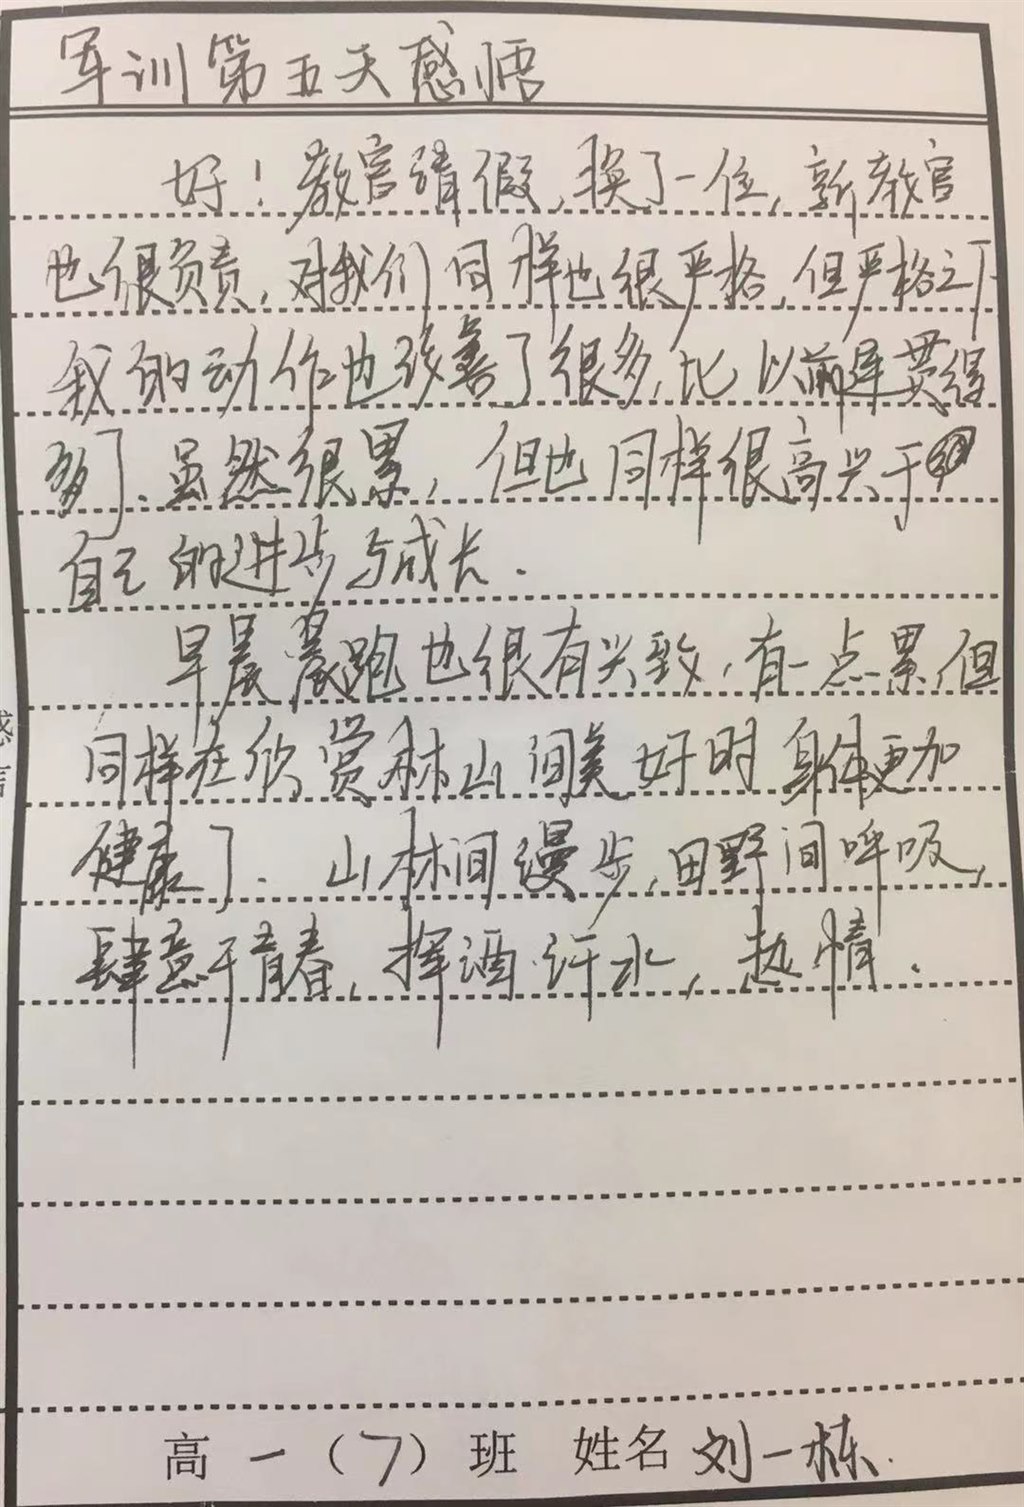 军训第五天感悟
好！教官请假,换了一位,新教官
也很负责,对我们同样也很严格,但严格之下
我的动作也改善了很多,比以前连贯得
多了.虽然很累,但也同样很高兴于
自己的进步与成长.
早晨晨跑也很有兴致,有一点累,但
同样在欣赏林山间美好时身体更加
健康了.山林间漫步,田野间呼吸,
肆意于青春,挥洒汗水,热情.
高一(7)班 姓名刘一栋.